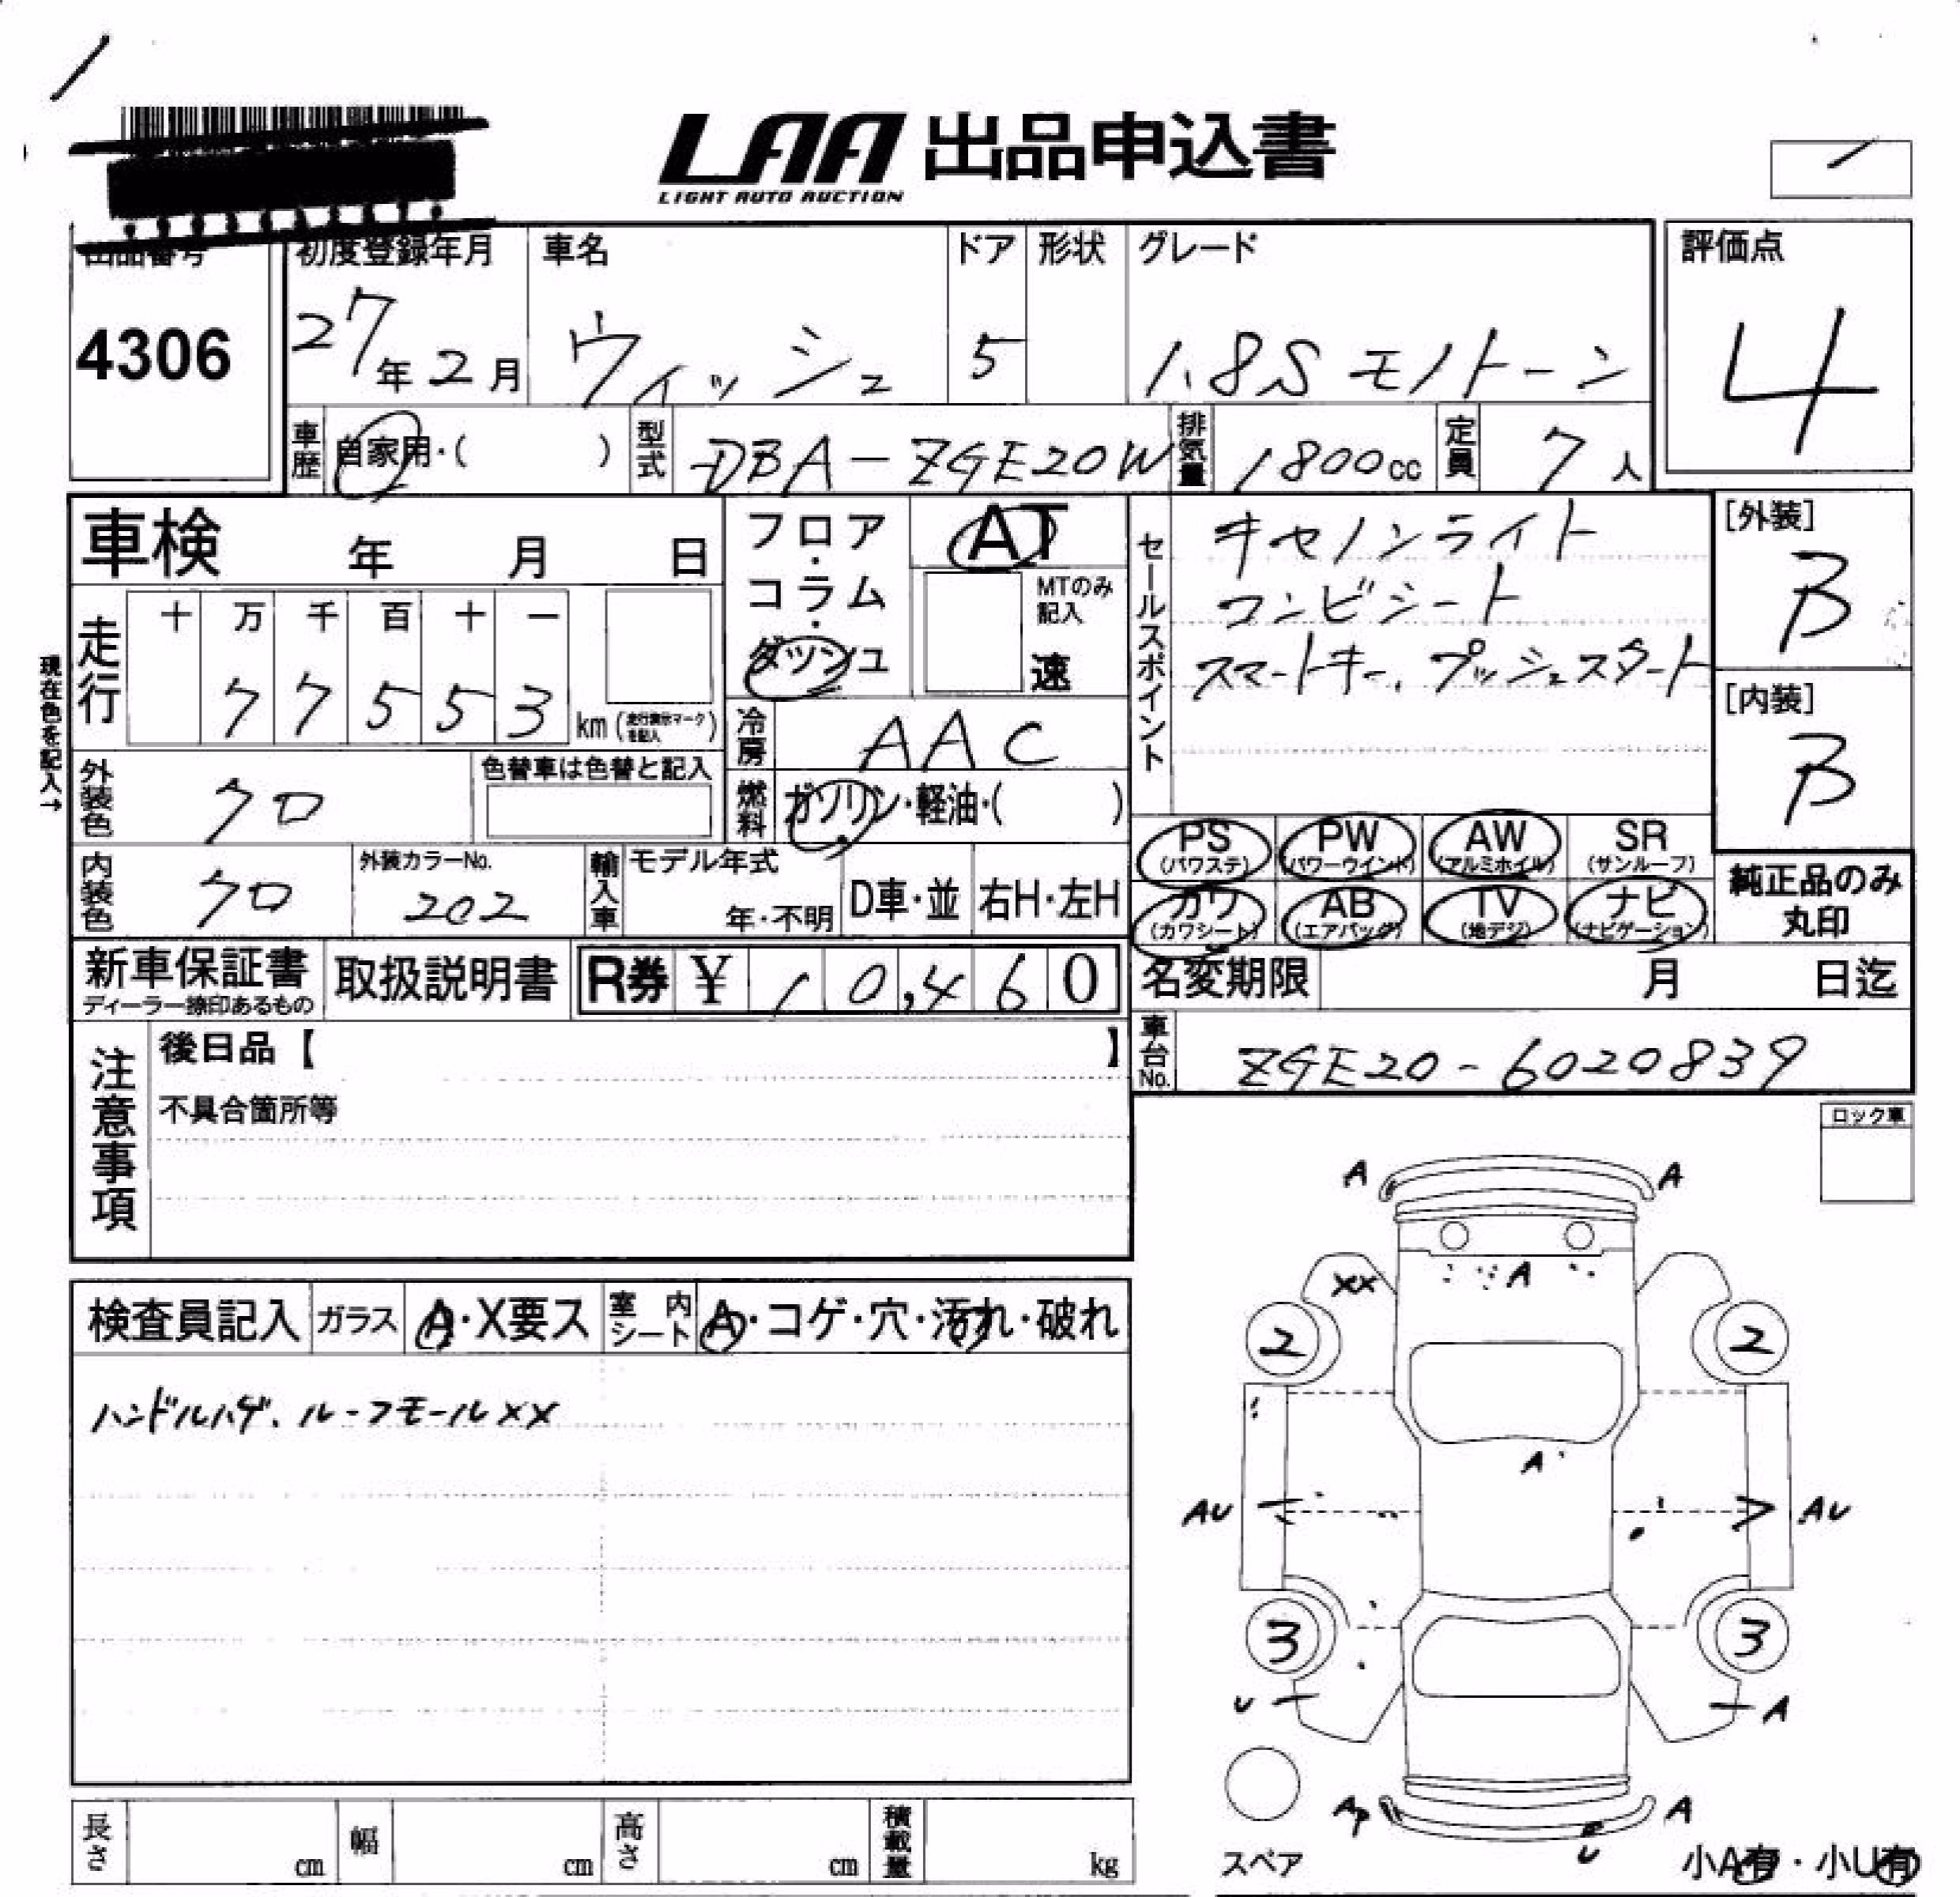 LAA 出品申込書
LIGHT AUTO AUCTION
出品番号 初度登録年月 車名 ドア 形状 グレード 評価点
4306 27年2月 ヴィッシュ 5 1.8S モノトーン 4
車歴 自家用・( ) 型式 DBA-ZGE20W 排気量 1800cc 定員 7人
車検 年 月 日
フロア・コラム・ダッシュ
AT
MTのみ記入
速
セールスポイント
キセノンライト
コンビシート
スマートキー、プッシュスタート
[外装]
B
[内装]
B
現在色を記入→
走行 十 万 千 百 十 一
77553 km (走行表示マークを記入)
冷房 AAC
外装色 クロ 色替車は色替と記入
燃料 ガソリン・軽油・( )
内装色 クロ 外装カラーNo. 202 輸入車 モデル年式 年・不明 D車・並 右H・左H
PS (パワステ) PW (パワーウインド) AW (アルミホイル) SR (サンルーフ)
カワ (カワシート) AB (エアバッグ) TV (地デジ) ナビ (ナビゲーション)
純正品のみ丸印
新車保証書 ディーラー捺印あるもの 取扱説明書 R券 ¥ 10,460
名変期限 月 日迄
車台No. ZGE20-6020839
注意事項
後日品【 】
不具合箇所等
ロック車
検査員記入 ガラス A・X要ス 室内シート A・コゲ・穴・汚れ・破れ
ハンドルハゲ、ルーフモールXX
A A
XX A
2 2
A
AU AU
3 3
U A
AP A
U
スペア
小A有・小U有
長さ cm 幅 cm 高さ cm 積載量 kg